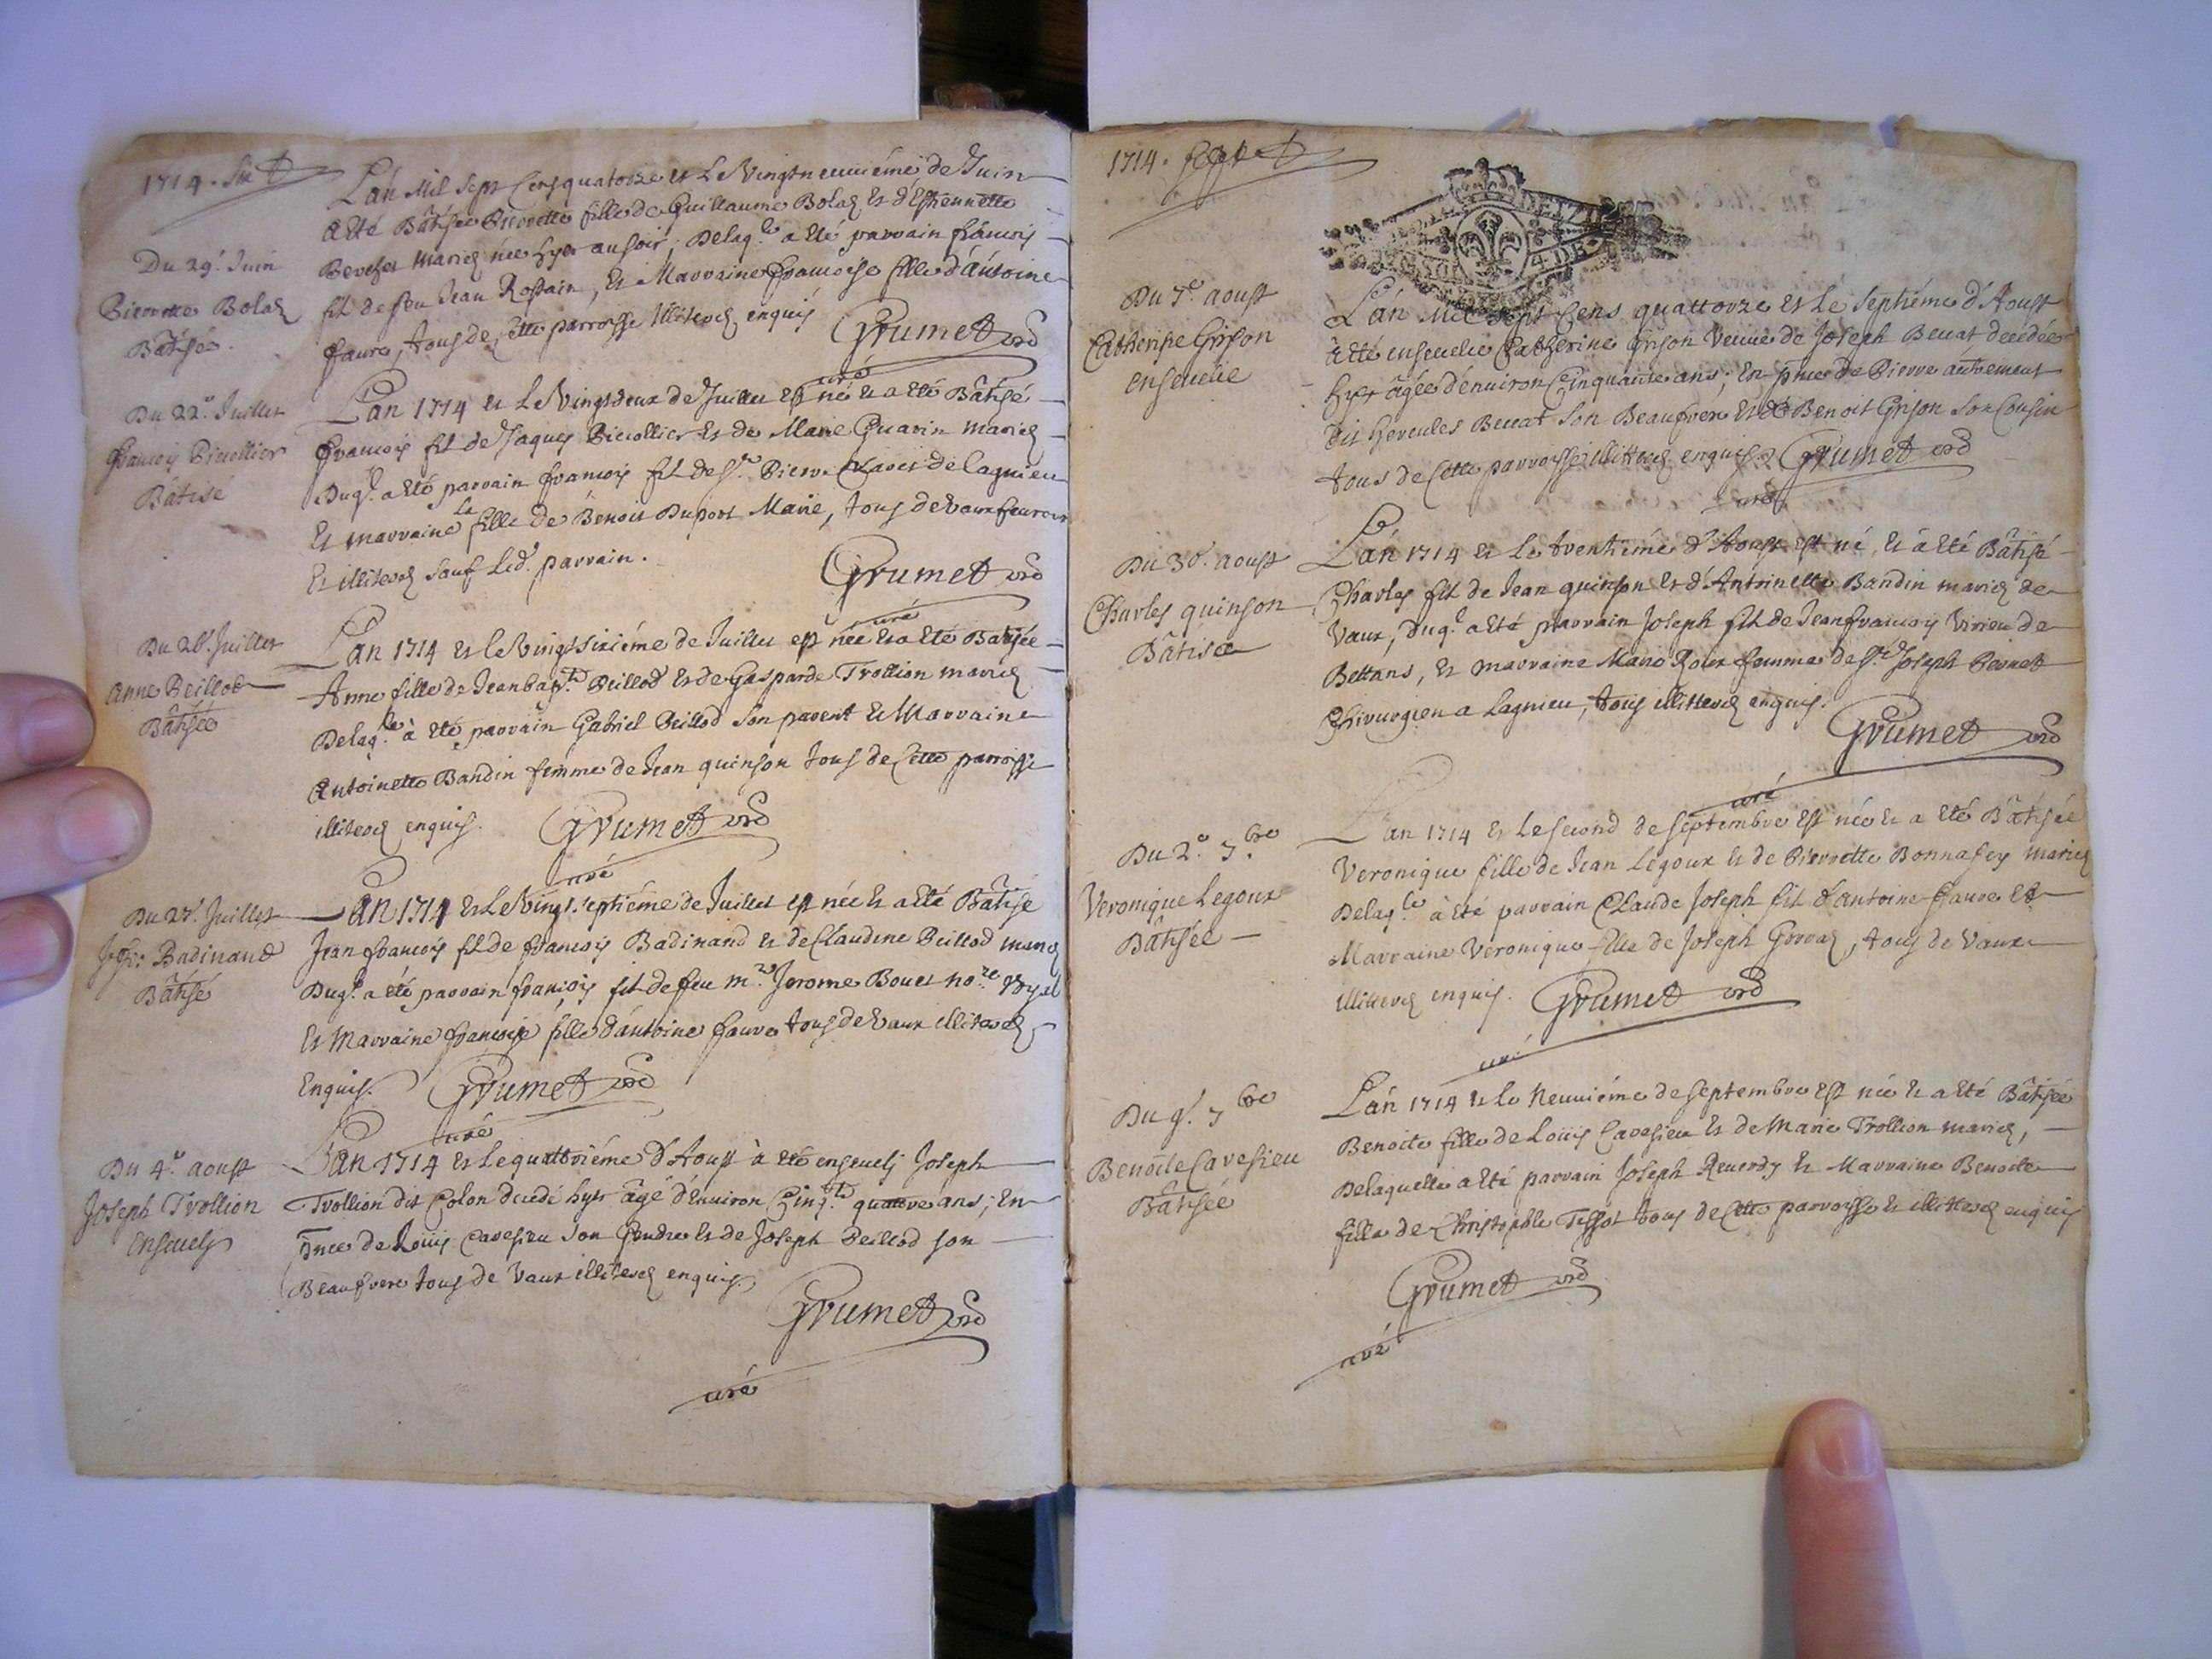 1714. Six
Du 29.e Juin
Pierrette Bolaz
Bâtisée.
L'an Mil Sept Cens quatorze et Le Vingtneuuiéme de Juin
a Eté Bâtisée Pierrette fille de Guillaume Bolaz et d'Esthennette
mariez née hyer au soir; Delaq.le a Eté parrain francois
fil de feu Jean Rostain, Et Marraine francoise fille d'antoine
faure, tous de Cette parroisse illiterez enquis
Grumet
curé
Du 22.e Juillet
francois
Bâtisé
L'an 1714 et Le Vingtdeux de Juillet est né et a Eté Bâtisé
francois fil de Jaques et de Marie Guarin mariez
Duq.l a Eté parrain francois fil de S.r Pierre de Lagnieu
Et marraine la fille de Benoit Duport Marie, tous de Vaux
Et illiterez sauf Led.t parrain.
Grumet
curé
Du 26.e Juillet
Anne Beillod
Bâtisée
L'an 1714 et le Vingtsixiéme de Juillet est née et a Eté Batisée
Anne fille de Jeanbap.te Beillod et de Gasparde Trollion mariez
Delaq.le à Eté parrain Gabriel Beillod son parent Et Marraine
Antoinette Bandin femme de Jean quinson tous de Cette parroisse
illiterez enquis.
Grumet
curé
Du 27.e Juillet
Badinand
Bâtisé
L'an 1714 et Le Vingt septiéme de Juillet est née et a Eté Bâtisé
Jean francois fil de francois Badinand et de Claudine Beillod mariez
Duq.l a été parrain francois fil de feu m.re Jerome Bouet no.re Royal
Et Marraine francoise fille d'antoine faure tous de Vaux illiterez
Enquis.
Grumet
curé
Du 4.e aoust
Joseph Trollion
Enseuely
L'an 1714 et Le quattriéme d'Aoust à Eté enseuely Joseph
Trollion dit Colon décédé hyer âgé d'Enuiron Cinq.te quattre ans; En
pnce de Loüis Cavesieu son Gendre et de Joseph Beillod son
Beaufrere tous de Vaux illiterez enquis
Grumet
curé
1714. sept
Du 7.e aoust
Catherine Grison
enseuelie
L'an Mil sept Cens quattorze et Le septiéme d'Aoust
à Eté enseuelie Catherine Grison Veuue de Joseph Beuat decédée
hyer âgée d'enuiron Cinquante ans; En pnce de Pierre autrement
dit Hercules Beuat son Beaufrere Et de Benoit Grison son Cousin
tous de Cette parroisse illitterez enquis.
Grumet
curé
Du 30.e aoust
Charles quinson
Bâtisé
L'an 1714 et Le trentiéme d'Aoust est né, et à Eté Bâtisé
Charles fil de Jean quinson et d'Antoinette Bandin mariez de
Vaux, duq.l a Eté parrain Joseph fil de Jeanfrancois Virieu de
Bettans, Et marraine Marie Roux femme de S.r Joseph
Chirurgien a Lagnieu, tous illitterez enquis.
Grumet
curé
Du 2.e 7.bre
Veronique Legoux
Bâtisée
L'an 1714 et Le second de septembre Est née et a Eté Bâtisée
Veronique fille de Jean Legoux et de Pierrette mariez
Delaq.le à Eté parrain Claude Joseph fil d'antoine faure Et
Marraine Veronique fille de Joseph tous de Vaux
illitterez enquis.
Grumet
curé
Du 9.e 7.bre
Benoite Cavesieu
Bâtisée
L'an 1714 et Le Neuuiéme de septembre Est née et a Eté Bâtisée
Benoite fille de Loüis Cavesieu et de Marie Trollion mariez,
Delaquelle a Eté parrain Joseph Reuerdy Et Marraine Benoite
fille de Christophle Tissot tous de Cette parroisse et illitterez enquis
Grumet
curé